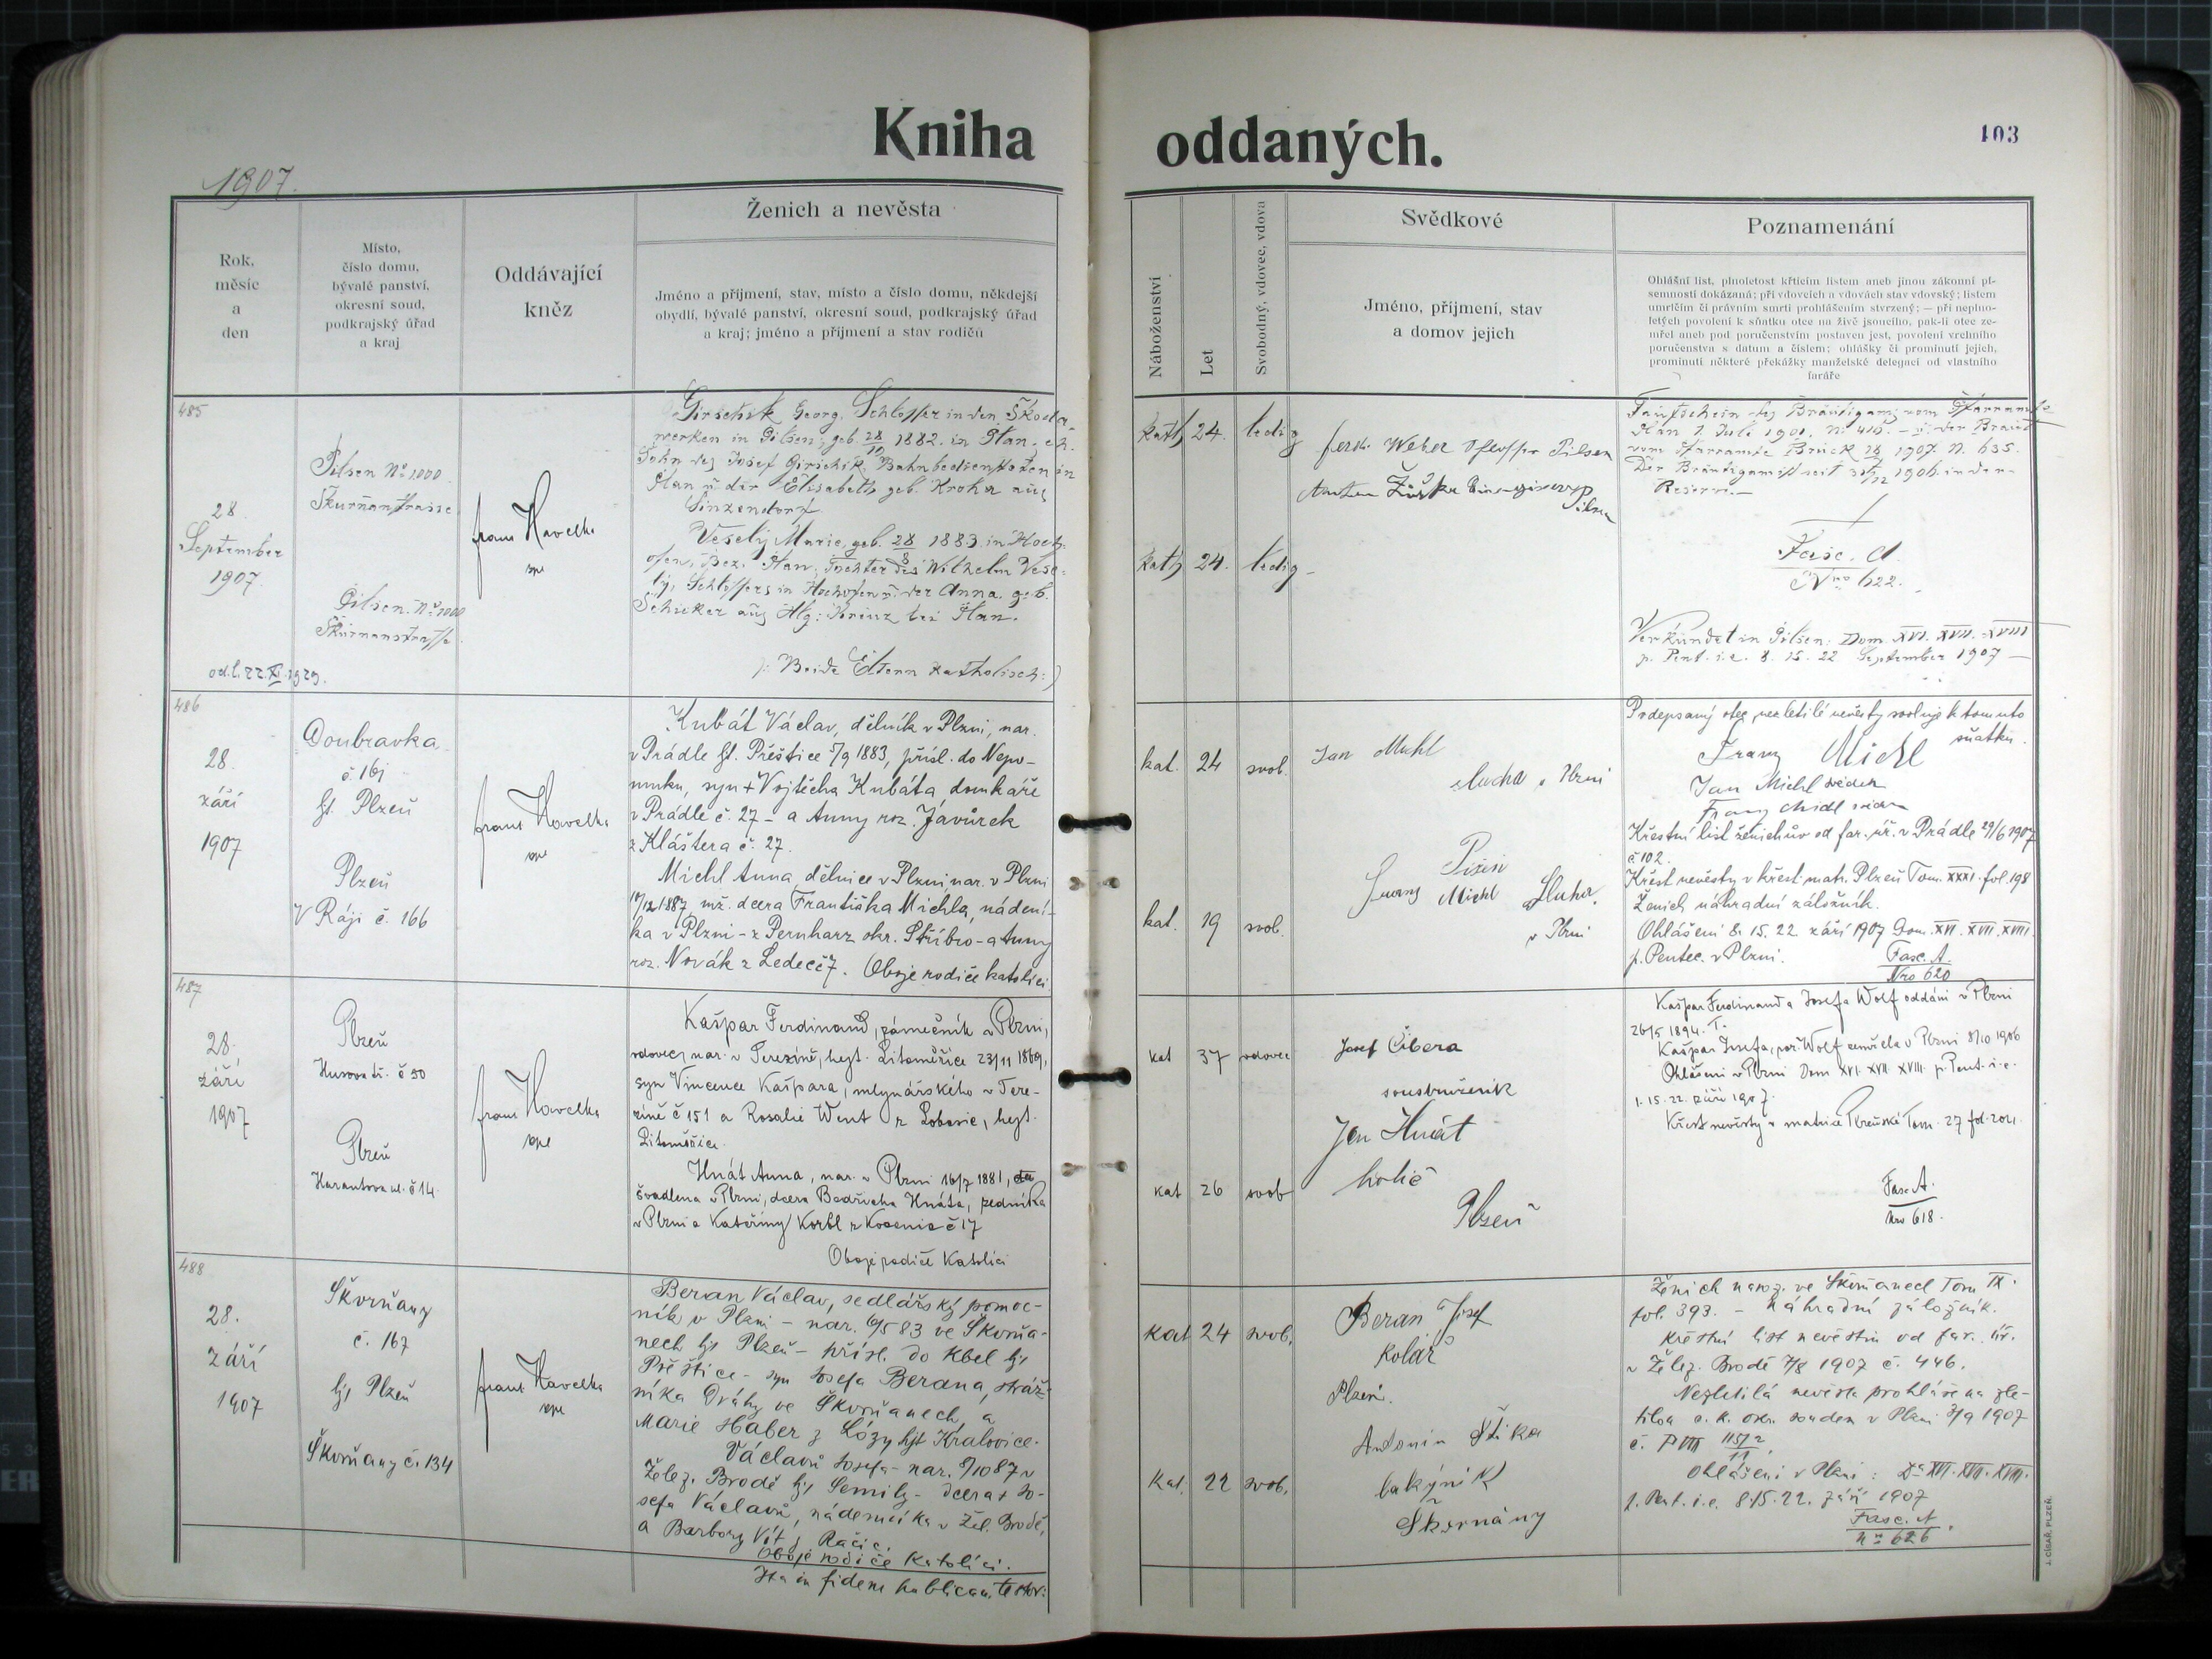 Kniha
oddaných.
103
1907.
Rok,
měsíc
a
den
Místo,
číslo domu,
bývalé panství,
okresní soud,
podkrajský úřad
a kraj
Oddávající
kněz
Ženich a nevěsta
Jméno a příjmení, stav, místo a číslo domu, někdejší
obydlí, bývalé panství, okresní soud, podkrajský úřad
a kraj; jméno a příjmení a stav rodičů
Náboženství
Let
Svobodný, vdovec, vdova
Svědkové
Jméno, příjmení, stav
a domov jejich
Poznamenání
Ohlášní list, plnoletost křticím listem aneb jinou zákonní pí-
semností dokázaná; při vdovcích a vdovách stav vdovský; listem
umrlčím či právním smrti prohlášením stvrzený; — při neplno-
letých povolení k sňatku otce na živě jsoucího, pak-li otec ze-
mřel aneb pod poručenstvím postaven jest, povolení vrchního
poručenstva s datum a číslem; ohlášky či prominutí jejich,
prominutí některé překážky manželské delegací od vlastního
faráře
485
28
September
1907.
Pilsen No 1000
Pilsen. No 1000
odl. 22. XI. 1929.
Franz Havelka
Girschik Georg, Schlosser in den Škoda-
werken in Pilsen, geb. 28/10 1882. in Plan. eh.
Sohn des Josef Girschik, Bahnbediensteten in
Plan u. der Elisabeth geb. Kroha aus
Sinzendorf
Veselý Marie, geb. 28/8 1883. in Hoch-
ofen, Bez. Plan, Tochter des Wilhelm Vese-
lý, Schlossers in Hochofen u. der Anna. geb.
Schicker aus Hlg: Kreuz bei Plan.
/: Beide Eltern katholisch :)
kath 24. ledig
kath 24. ledig
Ferd. Weber Pilsen
Anton Žůrka
Pilsen
Taufschein des Bräutigams vom Pfarramte
Plan 1. Juli 1901, No 410. – u. der Braut
vom Pfarramte Bruck 1907. N. 635.
Der Bräutigam ist seit 31/12 1906. in der
Reserve. —
Fasc. A.
Nro 622.
Verkündet in Pilsen: Dom. XVI. XVII. XVIII
p. Pent. i. e. 8. 15. 22 September 1907 —
486
28.
září
1907
Doubravka
hj. Plzeň
Plzeň
V Ráji č. 166
Franz Havelka
Kubát Václav, dělník v Plzni, nar.
v Prádle hj. Přeštice 5/9 1883, přísl. do Nepo-
muku, syn + Vojtěcha Kubáta domkáře
v Prádle č. 27 – a Anny roz. Javůrek
z Kláštera č. 27.
Michl Anna dělnice v Plzni, nar. v Plzni
17/12 1887 mž. dcera Františka Michla, nádení-
ka v Plzni – z Pernharz okr. Stříbro – a Anny
roz. Novák z Ledeč č 7. Oboje rodiče katolíci
kat. 24 svob.
kat. 19 svob.
Jan Michl
sluha v Plzni
Franz Michl sluha.
v Plzni
Podepsaný otec nezletilé nevěsty svoluje k tomuto
sňatku.
Franz Michl
Jan Michl svědek
Franz Michl svědek
Křestní list ženichův od far. úř. v Prádle 29/6 1907
č 102.
Křest nevěsty v křest. matr. Plzeň Tom. XXXI. fol. 198
Ženich náhradní záložník.
Ohlášení 8. 15. 22 září 1907 Dom. XVI. XVII. XVIII.
p. Pentec. v Plzni.
Fasc. A.
Nro 620
487
28.
září
1907
Plzeň
Husova tř. č 50
Plzeň
Harantova ul. č 14
Franz Havelka
Kašpar Ferdinand, zámečník v Plzni,
vdovec, nar. v Terezíně, hejt. Litoměřice 23/11 1869,
syn Vincence Kašpara, mlynářského v Tere-
zíně č 151 a Rosalie Went z Lobosic, hejt.
Litoměřice.
Hnát Anna, nar. v Plzni 16/7 1881,
švadlena v Plzni, dcera Bedřicha Hnáta, zedníka
v Plzni a Kateřiny Korbl z Kocenic č 17
Oboje rodiče Katolíci
kat 37 vdovec
kat 26 svob
Josef Čibera
soustružník
Jan Hnát
holič
Plzeň
Kašpar Ferdinand a Josefa Wolf oddáni v Plzni
26/5 1894. T.
Kašpar Josefa, roz. Wolf zemřela v Plzni 8/10 1906
Ohlášeni v Plzni Dom XVI. XVII. XVIII. p. Pent. i. e.
1. 15. 22. září 1907.
Křest nevěsty v matrice Plzeňské Tom. 27 fol. 2021.
Fasc A.
Nro 618.
488
28.
září
1907
Škvrňany
č. 167
hj. Plzeň
Škvrňany č. 134
Franz Havelka
Beran Václav, sedlářský pomoc-
ník v Plzni – nar. 6/5 83 ve Škvrňa-
nech hj. Plzeň – přísl. do Kbel hj.
Přeštice – syn Josefa Berana, stráž-
níka dráhy ve Škvrňanech, a
Marie Haber z Lózy hjt Kralovice.
Václavů Josefa – nar. 8/10 87 v
Želez. Brodě hj. Semily – dcera + Jo-
sefa Václavů, nádeníka v Žel. Brodě,
a Barbory Vít z Račic.
Oboje rodiče Katolíci.
Ita in fidem publicam testor:
Kat 24 svob.
Kat. 22 svob.
Beran Josef
kolář
Plzeň.
Antonín Štika
Škvrňany
Ženich naroz. ve Škvrňanech Tom IX.
fol. 393. – náhradní záložník.
Křestní list nevěstin od far. úř.
v Želez. Brodě 7/8 1907 č. 446.
Nezletilá nevěsta prohlášena zle-
tilou c. k. okr. soudem v Plzni 3/9 1907
č. P VIII 115/2/11.
Ohlášeni v Plzni: Da XVI. XVII. XVIII.
p. Pent. i. e. 8. 15. 22. září 1907
Fasc. A
No 626.
J. CÍSAŘ, PLZEŇ.